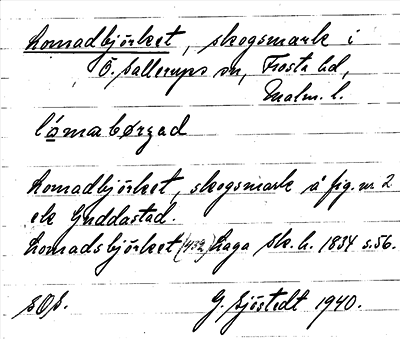 Lomadbjörket, skogsmark i
Ö. Sallerups sn, Frosta hd,
Malm. l.
lómabørzad
Lomadbjörket, skogsmark å fig. nr 2
ek Guddastad.
Lomadsbjörket (452) Laga sk. h. 1834 s. 56.
SOS. G. Sjöstedt 1940.